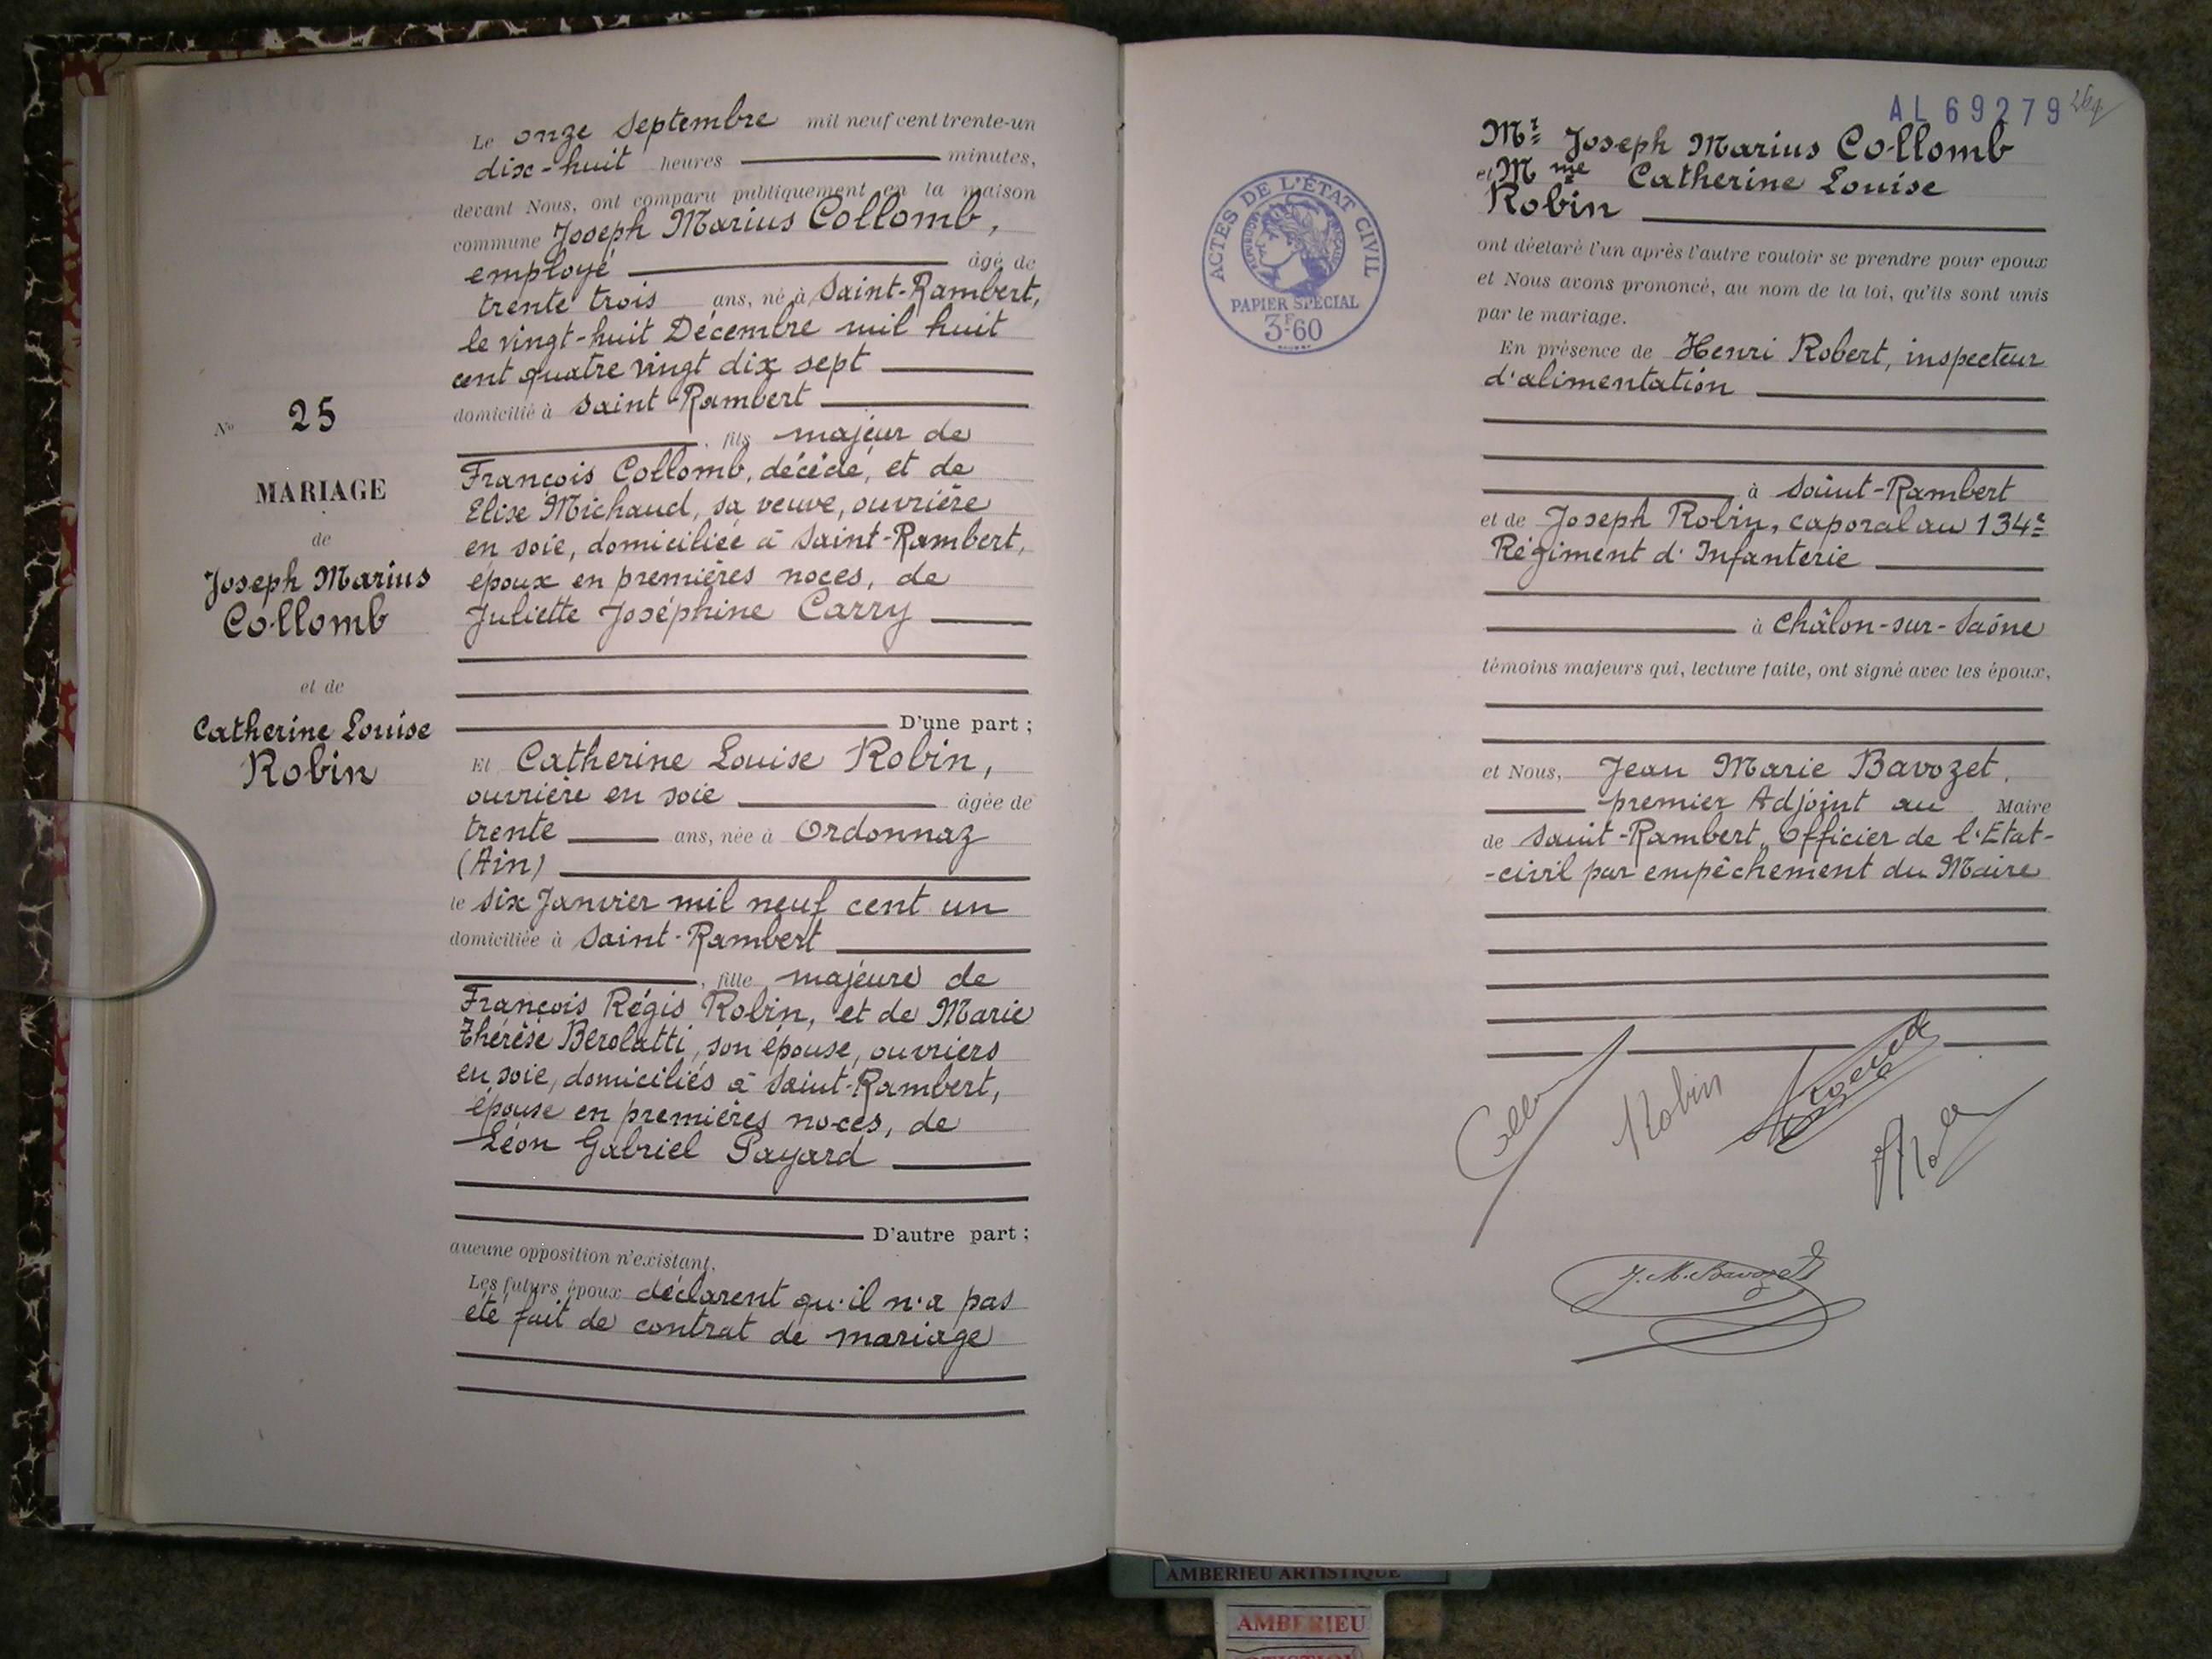 Le onze Septembre mil neuf cent trente-un
dix-huit heures minutes,
devant Nous, ont comparu publiquement en la maison
commune Joseph Marius Collomb,
employé âgé de
trente trois ans, né à Saint-Rambert,
le vingt-huit Décembre mil huit
cent quatre vingt dix sept
domicilié à Saint-Rambert
, fils majeur de
François Collomb, décédé, et de
Elise Michaud, sa veuve, ouvrière
en soie, domiciliée à Saint-Rambert,
époux en premières noces, de
Juliette Joséphine Carry
D'une part ;
Et Catherine Louise Robin,
ouvrière en soie âgée de
trente ans, née à Ordonnaz
(Ain)
le six Janvier mil neuf cent un
domiciliée à Saint-Rambert
, fille majeure de
François Régis Robin, et de Marie
Thérèse Berolatti, son épouse, ouvriers
en soie, domiciliés à Saint-Rambert,
épouse en premières noces, de
Léon Gabriel Payard
D'autre part ;
aucune opposition n'existant.
Les futurs époux déclarent qu'il n'a pas
été fait de contrat de mariage
No 25
MARIAGE
de
Joseph Marius
Collomb
et de
Catherine Louise
Robin
AL 69279
Mr Joseph Marius Collomb
et Mme Catherine Louise
Robin
ont déclaré l'un après l'autre vouloir se prendre pour époux
et Nous avons prononcé, au nom de la loi, qu'ils sont unis
par le mariage.
En présence de Henri Robert, inspecteur
d'alimentation
à Saint-Rambert
et de Joseph Robin, caporal au 134e
Régiment d'Infanterie
à Châlon-sur-Saône
témoins majeurs qui, lecture faite, ont signé avec les époux,
et Nous, Jean Marie Bavozet,
premier Adjoint au Maire
de Saint-Rambert, Officier de l'Etat-
-civil par empêchement du Maire
Robin
J. M. Bavozet
ACTES DE L'ÉTAT CIVIL
PAPIER SPÉCIAL
3F60
AMBERIEU ARTISTIQUE
AMBERIEU